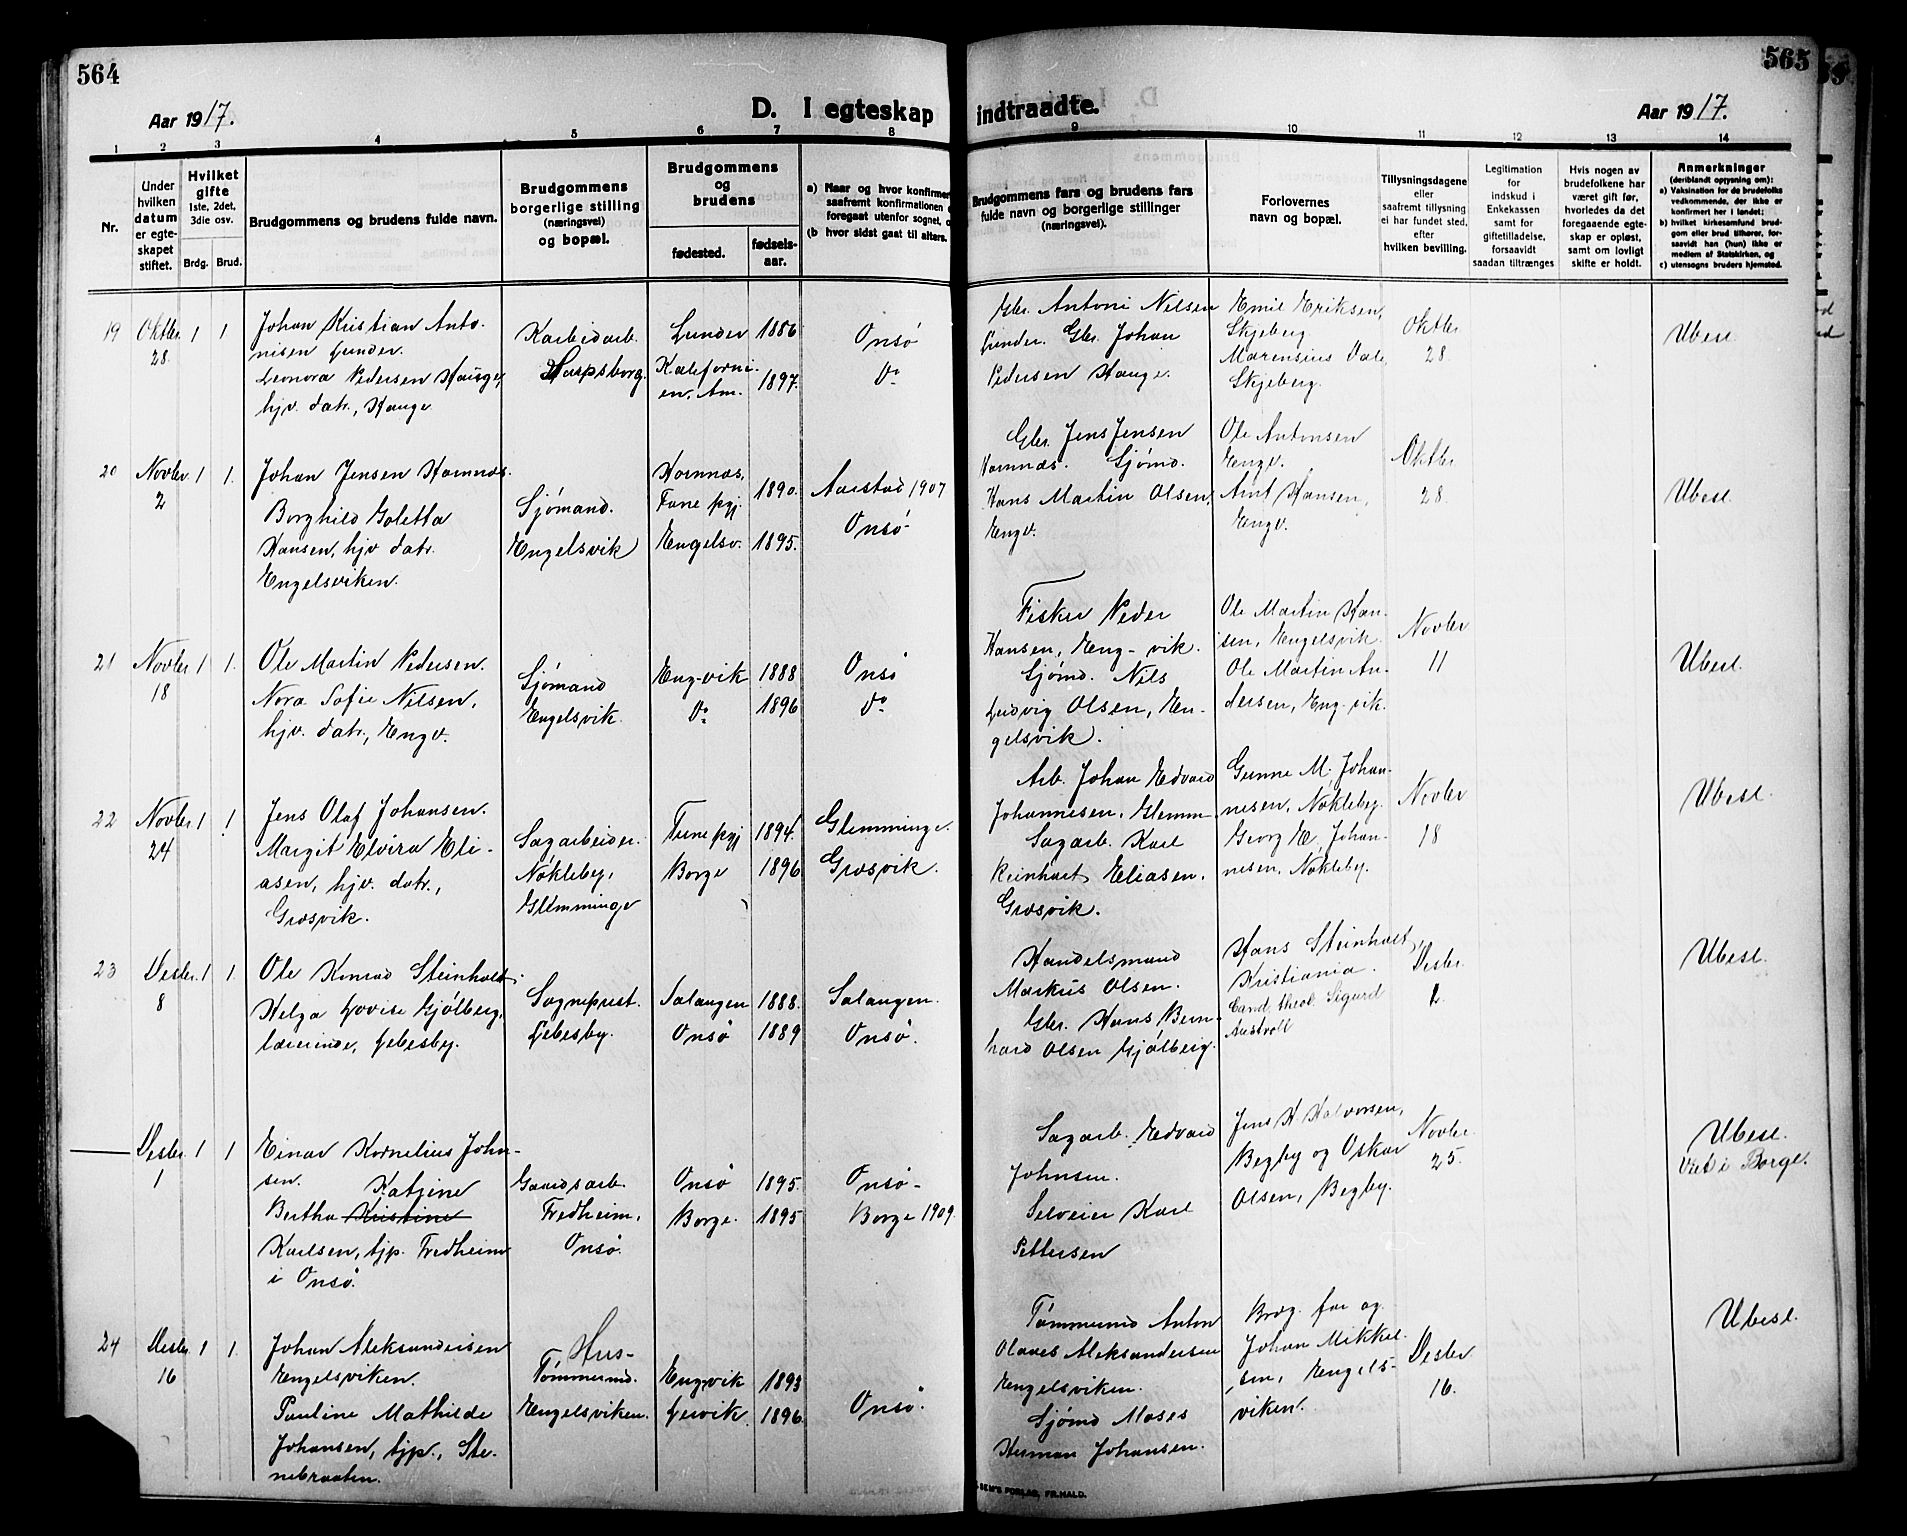 564
Aar 1917.
D. I egteskap
1 2 3 4 5 6 7 8
Nr.
Under hvilken datum er egteskapet stiftet.
Hvilket gifte 1ste, 2det, 3die osv.
Brdg. Brud.
Brudgommens og brudens fulde navn.
Brudgommens borgerlige stilling (næringsvei) og bopæl.
Brudgommens og brudens
fødested. fødselsaar.
a) Naar og hvor konfirmer
saafremt konfirmationen
foregaat utenfor sognet, o
(b hvor sidst gaat til alters.
19 Oktbr. 28 1 1
Johan Kristian Anto-
nisen Lunder.
Leonora Pedersen Hauge,
hjv. datr., Hauge
Karbidarb.
Sarpsborg.
Lunder 1886
Kaliforni-
en, Am. 1897.
Onsø
Do
20 Novbr 2 1 1.
Johan Jensen Hornnæs.
Borghild Goletta
Hansen, hjv. datr.
Engelsviken.
Sjømand.
Engelsvik
Hornnæs,
Fane pgj. 1890.
Engelsv. 1895.
Aarstad 1907
Onsø
21 Novbr 18 1 1.
Ole Martin Pedersen.
Nora Sofie Nilsen,
hjv. datr., Engv.
Sjømand
Engelsvik.
Eng-vik 1888
Do 1896
Onsø
Do
22 Novbr 24 1 1
Jens Olaf Johansen.
Margit Elvira Eli-
asen, hjv. datr.,
Græsvik.
Sagarbeider.
Nøkleby,
Glemminge
Tune pgj 1894
Borge 1896
Glemminge.
Græsvik.
23 Desbr. 8 1 1.
Ole Konrad Steinholt
Helga Lovise Gjølberg,
lærerinde, Lebesby.
Sogneprest.
Lebesby.
Salangen 1888.
Onsø 1889
Salangen.
Onsø.
Desbr. 1 1 1
Einar Kornelius John-
sen. Katrine
Bertha Kristine
Karlsen, tjp. Fredheim
i Onsø.
Gaardsarb.
Fredheim,
Onsø.
Onsø 1895.
Borge. 1895
Onsø-
Borge 1909.
24 Desbr. 16 1 1.
Johan Aleksandersen
Engelsviken.
Pauline Mathilde
Johansen, tjp., Ste-
nebraaten.
Hus-
Tømmermd.
Engelsviken.
Eng-vik 1893
Lervik. 1896
Onsø.
565
indtraadte.
Aar 1917.
9 10 11 12 13 14
Brudgommens fars og brudens fars
fulde navn og borgerlige stillinger
(næringsvei).
Forlovernes
navn og bopæl.
Tillysningsdagene
eller
saafremt tillysning
ei har fundet sted,
efter
hvilken bevilling.
Legitimation
for
indskud i
Enkekassen
samt for
giftetilladelse,
forsaavidt
saadan tiltrænges
Hvis nogen av
brudefolkene har
været gift før,
hvorledes da det
foregaaende egte-
skap er opløst,
samt om lovligt
skifte er holdt.
Anmerkninger
(deriblandt opgysning om):
a) Vaksination for de brudefolks
vedkommende, der ikke er
konfirmert her i landet;
b) hvilket kirkesamfund brud-
gom eller brud tilhører, for-
saavidt han (hun) ikke er
medlem af Statskirken, og
c) utensogns bruders hjemsted.
Gbr. Antoni Nilsen
Lunder. Gbr. Johan
Pedersen Hauge.
Emil Eriksen,
Skjeberg
Marensius Dale,
Skjeberg.
Oktbr
28
Ubesl.
Gbr. Jens Jensen
Hornnæs. Sjømd.
Hans Martin Olsen,
Engv.
Ole Antonsen
Engv.
Arnt Hansen,
Engv.
Oktbr
28.
Ubesl.
Fisker Peder
Hansen, Eng-vik.
Sjømd. Nils
Ludvig Olsen, En-
gelsvik.
Ole Martin Han-
sen, Engelsvik.
Ole Martin An-
dersen, Eng-vik.
Novbr
11
Ubesl.
Arb. Johan Edvard
Johannesen, Glemm.
Sagarb. Karl
Reinhart Eliasen.
Græsvik.
Gunne M. Johan-
nesen, Nøkleby.
Georg E. Johan-
nesen, Nøkleby.
Novbr
18
Ubesl.
Handelsmand
Markus Olsen.
Gbr. Hans Bern-
hard Olsen Gjølberg.
Hans Steinholt,
Kristiania.
Cand. theol. Sigurd
Austvoll
Desbr.
2.
Ubesl.
Sagarb. Edvard
Johnsen.
Selveier Karl
Pettersen
Jens H Halvorsen,
Begby og Oskar
Olsen, Begby.
Novbr.
25.
Ubesl.
Viet i Borge.
Tømmermd Anton
Olaves Aleksandersen
Engelsviken.
Sjømd Moses
Herman Johansen.
Brdg. far og
Johan Mikkel-
sen, Engels-
viken.
Desbr.
16.
Ubesl.
SEM'S FORLAG, FR.HALD.